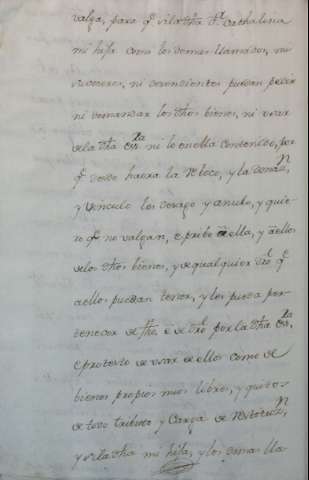 valga, para qe. si la dha Da. Cathalina
mi hija como los demas llamados, mis
subcesores, ni decendientes puedan pedir
ni demandar los dhos bienes, ni usar
de la dha essra. ni lo en ella contenido, por
qe. desde haora la reboco, y la donasn.
y vinculo los derogo y anulo, y quie-
ro qe. no valgan, e pribo a ella, y a ellos
de los dhos bienes, y de qualquier dro. qe.
a ellos puedan tener, y les pueda per-
tenecer de fho. e de dro. por la dha essra.
e protesto de usar de ellos como de
bienes propios mios libres, y quitos
de todo tributo y carga de restitusn.
y si la dha mi hija, y los demas lla